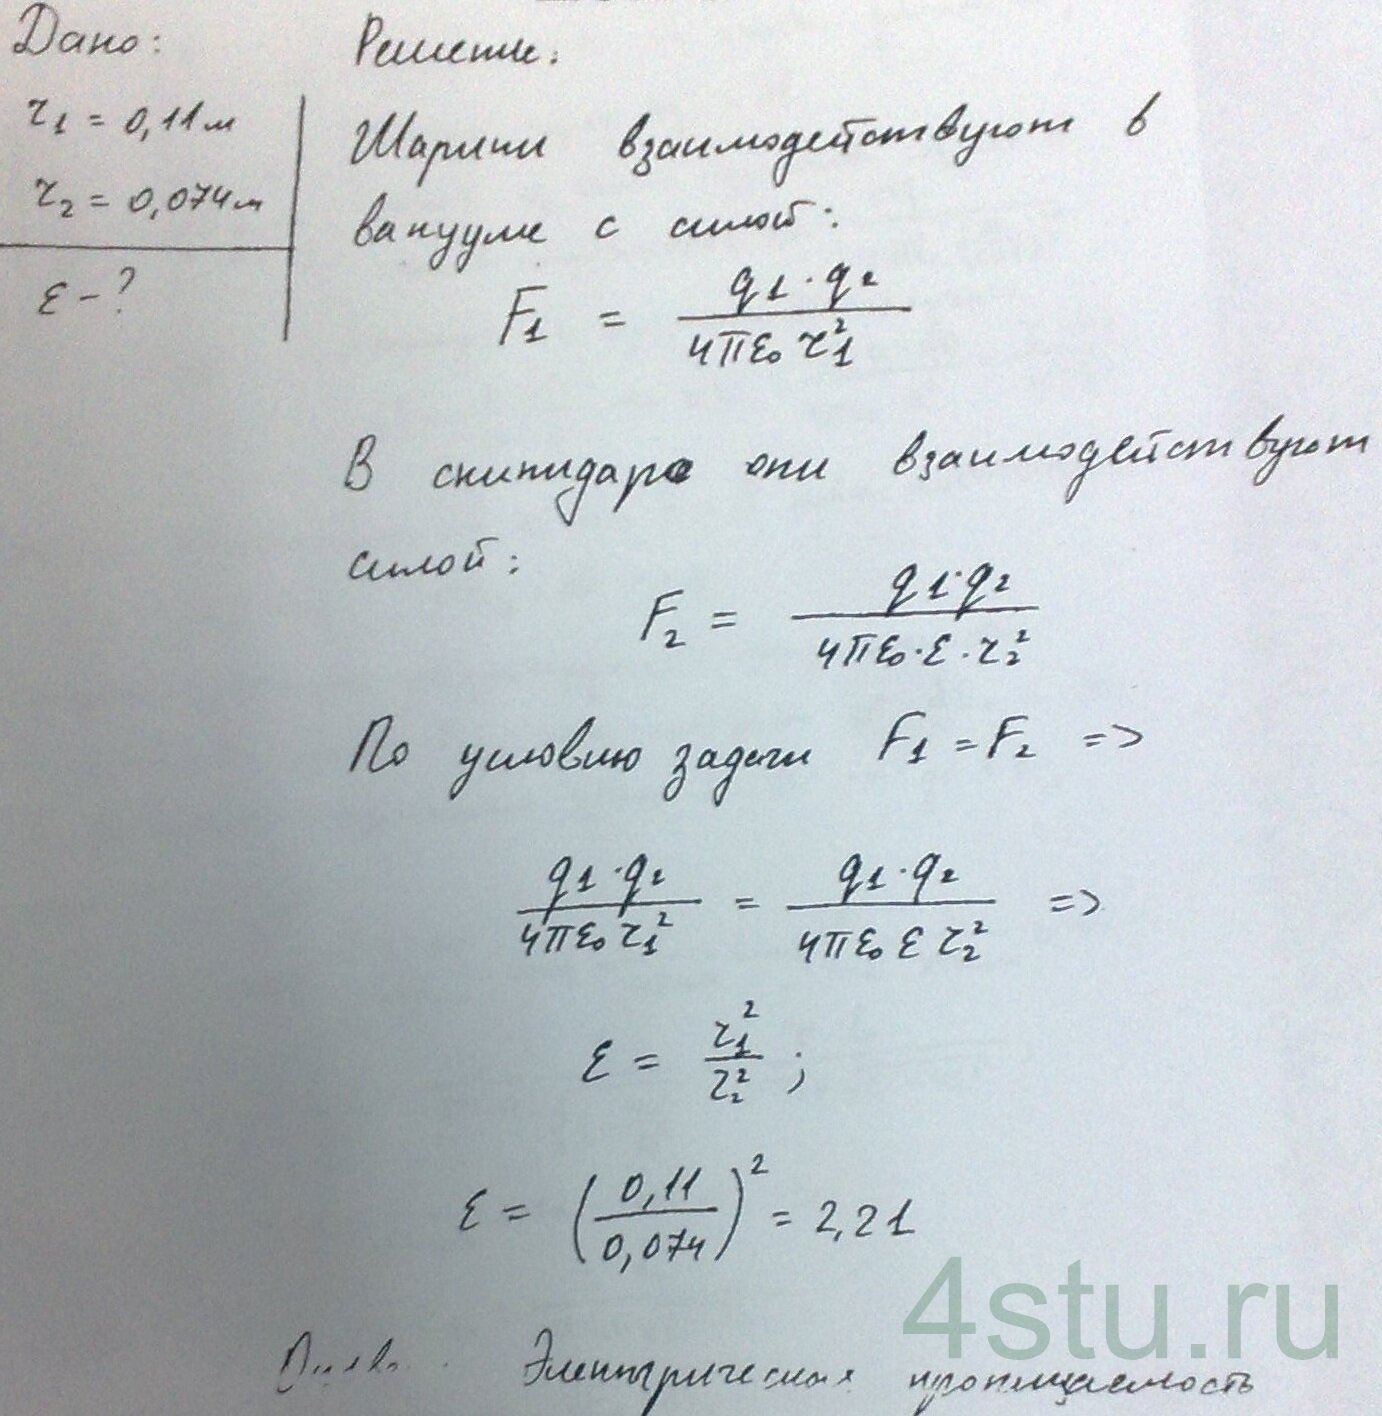 Дано:
r₁ = 0,11 м
r₂ = 0,074 м
ε – ?
Решение:
Шарики взаимодействуют в
вакууме с силой:
F₁ = q₁·q₂ / 4πε₀ r₁²
В скипидаре они взаимодействуют
силой:
F₂ = q₁·q₂ / 4πε₀·ε·r₂²
По условию задачи F₁ = F₂ =>
q₁·q₂ / 4πε₀ r₁² = q₁·q₂ / 4πε₀ ε r₂² =>
ε = r₁² / r₂² ;
ε = (0,11 / 0,074)² = 2,21
4stu.ru
Электрическая проницаемость